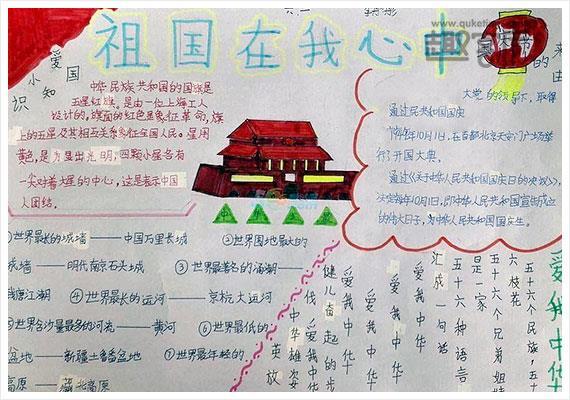 www.quketi
祖国在我心中
爱国
小知
识
中华民族共和国的国旗是
五星红旗。是由一位上海工人
设计的,旗面的红色是象征革命,旗
上的五星及其相互关系象征全国人民。星用
黄色,是为显出光明,四颗小星各有
一尖对着大星的中心,这是表示中国
人团结。
的来
大党的领导下,取得
通过民共和国国庆
1949年10月1日,在首都北京天安门广场举
行了开国大典。
通过《关于中华人民共和国国庆日的决议》,
决定每年10月1日,即中华人民共和国宣告成立
的伟大日子,为中华人民共和国国庆生。
①世界最长的城墙——中国万里长城
②世界围地最大的
城墙——明代南京石头城
③世界最著名的涌潮——
钱塘江潮
④世界最长的运河——京杭大运河
⑤世界含沙量最多的河流——黄河
⑥世界最低的
盆地——新疆吐鲁番盆地
⑦世界最年轻的
高原——藏北高原
爱我中华
五十六个民族,五十
六枝花
五十六个兄弟姐妹
是一家
五十六种语言
汇成一句话
爱我中华
爱我中华
爱我中华
健儿奋起的步
伐
爱我中华
中华雄姿
英放